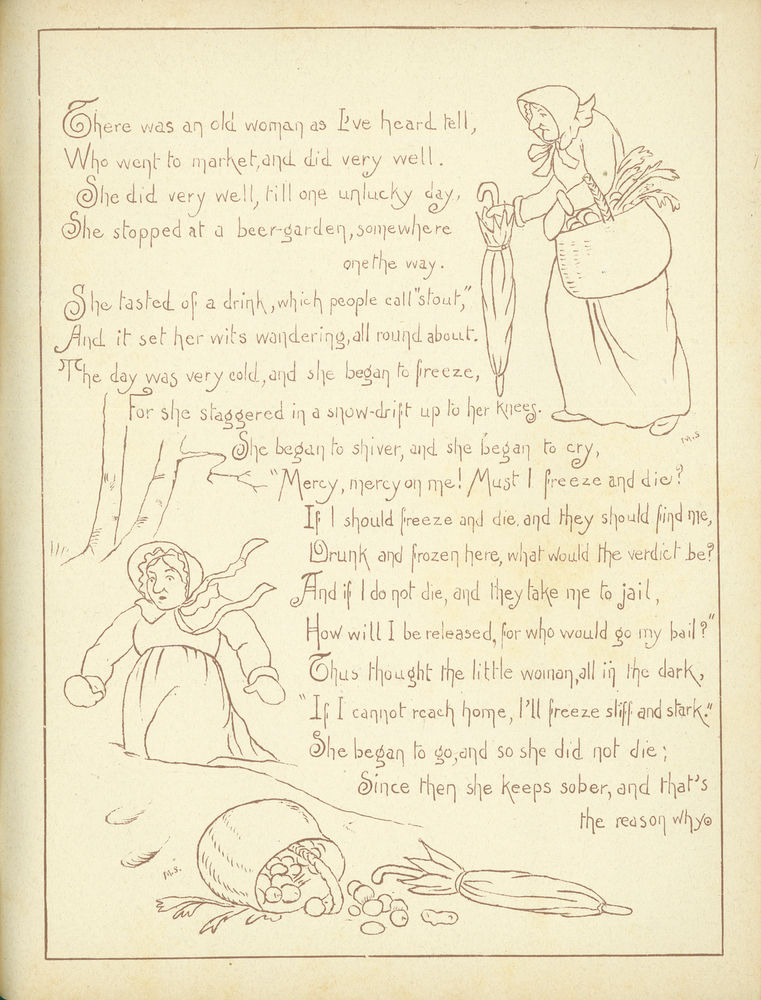 There was an old woman as I've heard tell,
Who went to market, and did very well.
She did very well, till one unlucky day,
She stopped at a beer-garden, somewhere
one the way.
She tasted of a drink, which people call "stout,"
And it set her wits wandering, all round about.
The day was very cold, and she began to freeze,
For she staggered in a snow-drift up to her knees.
M.S
She began to shiver, and she began to cry,
"Mercy, mercy on me! Must I freeze and die?
If I should freeze and die, and they should find me,
Drunk and frozen here, what would the verdict be?
And if I do not die, and they take me to jail,
How will I be released, for who would go my bail?"
Thus thought the little woman, all in the dark,
"If I cannot reach home, I'll freeze stiff and stark."
She began to go, and so she did not die;
Since then she keeps sober, and that's
the reason why.
M.S.